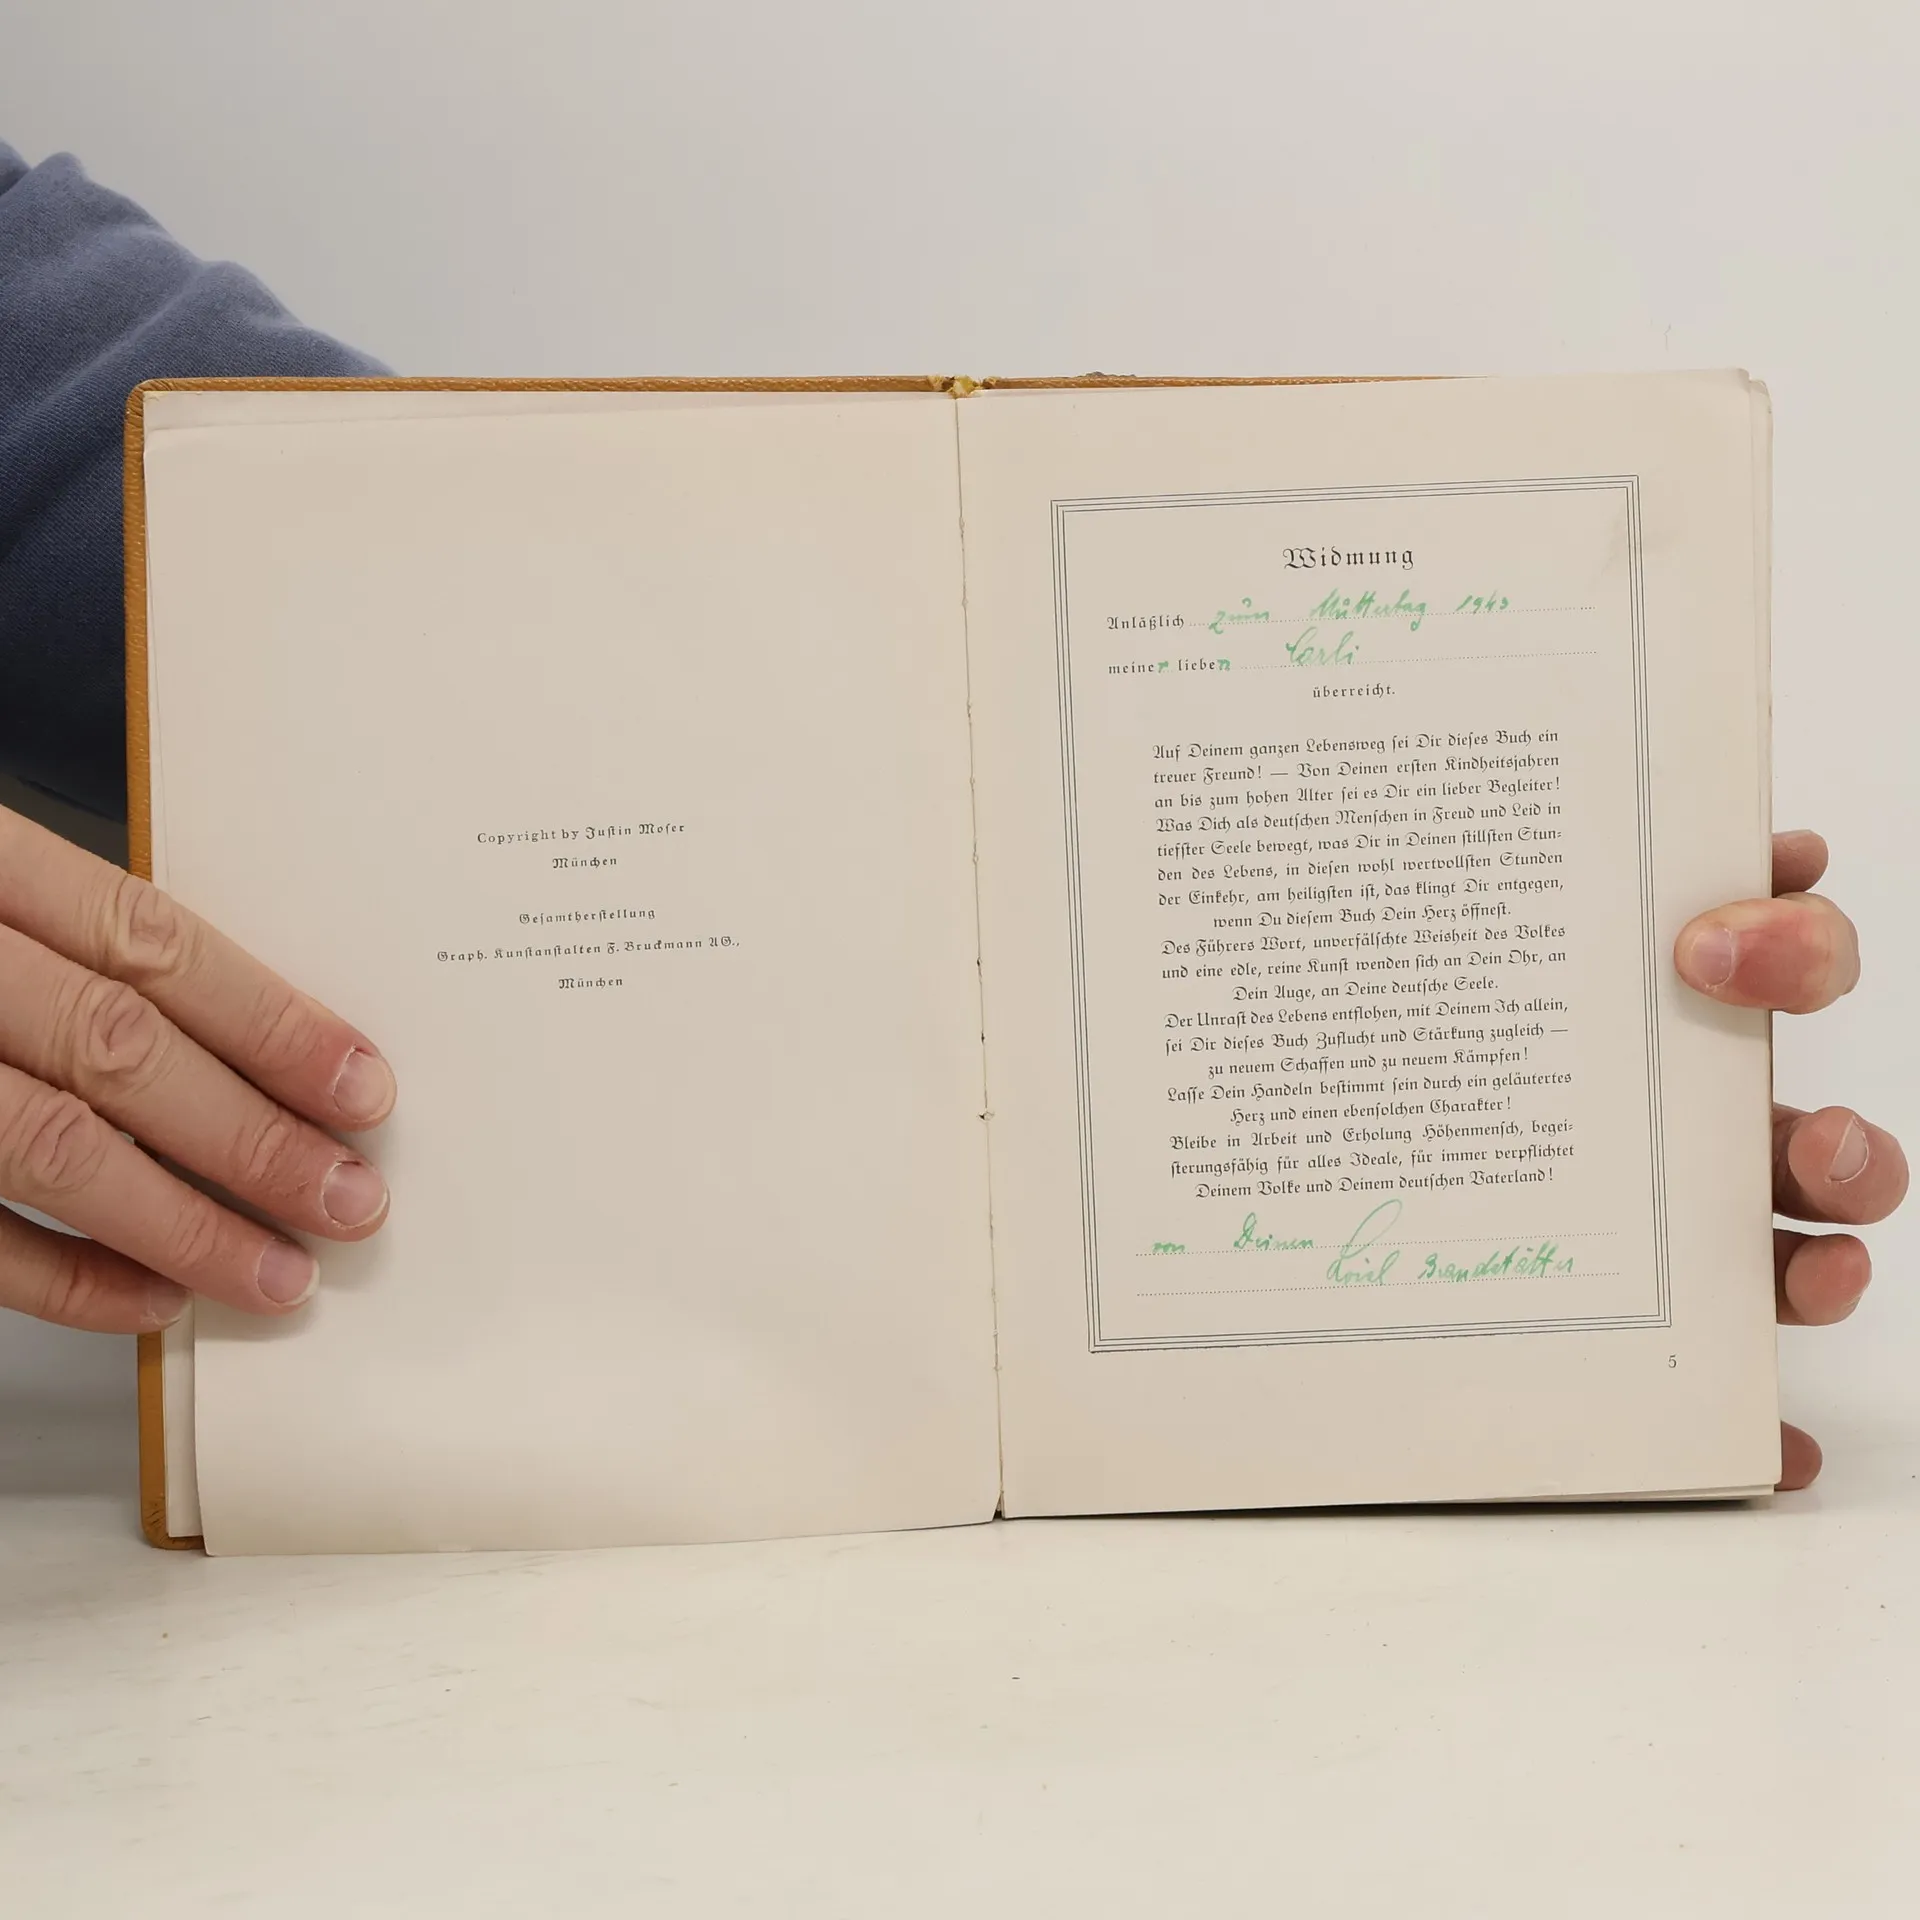 Copyright by Justin Moser
München
Gesamtherstellung
Graph. Kunstanstalten F. Bruckmann AG.,
München
Widmung
Anläßlich zum Muttertag 1943
meiner lieben Carli
überreicht.
Auf Deinem ganzen Lebensweg sei Dir dieses Buch ein
treuer Freund! — Von Deinen ersten Kindheitsjahren
an bis zum hohen Alter sei es Dir ein lieber Begleiter!
Was Dich als deutschen Menschen in Freud und Leid in
tiefster Seele bewegt, was Dir in Deinen stillsten Stun-
den des Lebens, in diesen wohl wertvollsten Stunden
der Einkehr, am heiligsten ist, das klingt Dir entgegen,
wenn Du diesem Buch Dein Herz öffnest.
Des Führers Wort, unverfälschte Weisheit des Volkes
und eine edle, reine Kunst wenden sich an Dein Ohr, an
Dein Auge, an Deine deutsche Seele.
Der Unrast des Lebens entflohen, mit Deinem Ich allein,
sei Dir dieses Buch Zuflucht und Stärkung zugleich —
zu neuem Schaffen und zu neuem Kämpfen!
Lasse Dein Handeln bestimmt sein durch ein geläutertes
Herz und einen ebensolchen Charakter!
Bleibe in Arbeit und Erholung Höhenmensch, begei-
sterungsfähig für alles Ideale, für immer verpflichtet
Deinem Volke und Deinem deutschen Vaterland!
von Deinen
Loisl Brandstätter
5